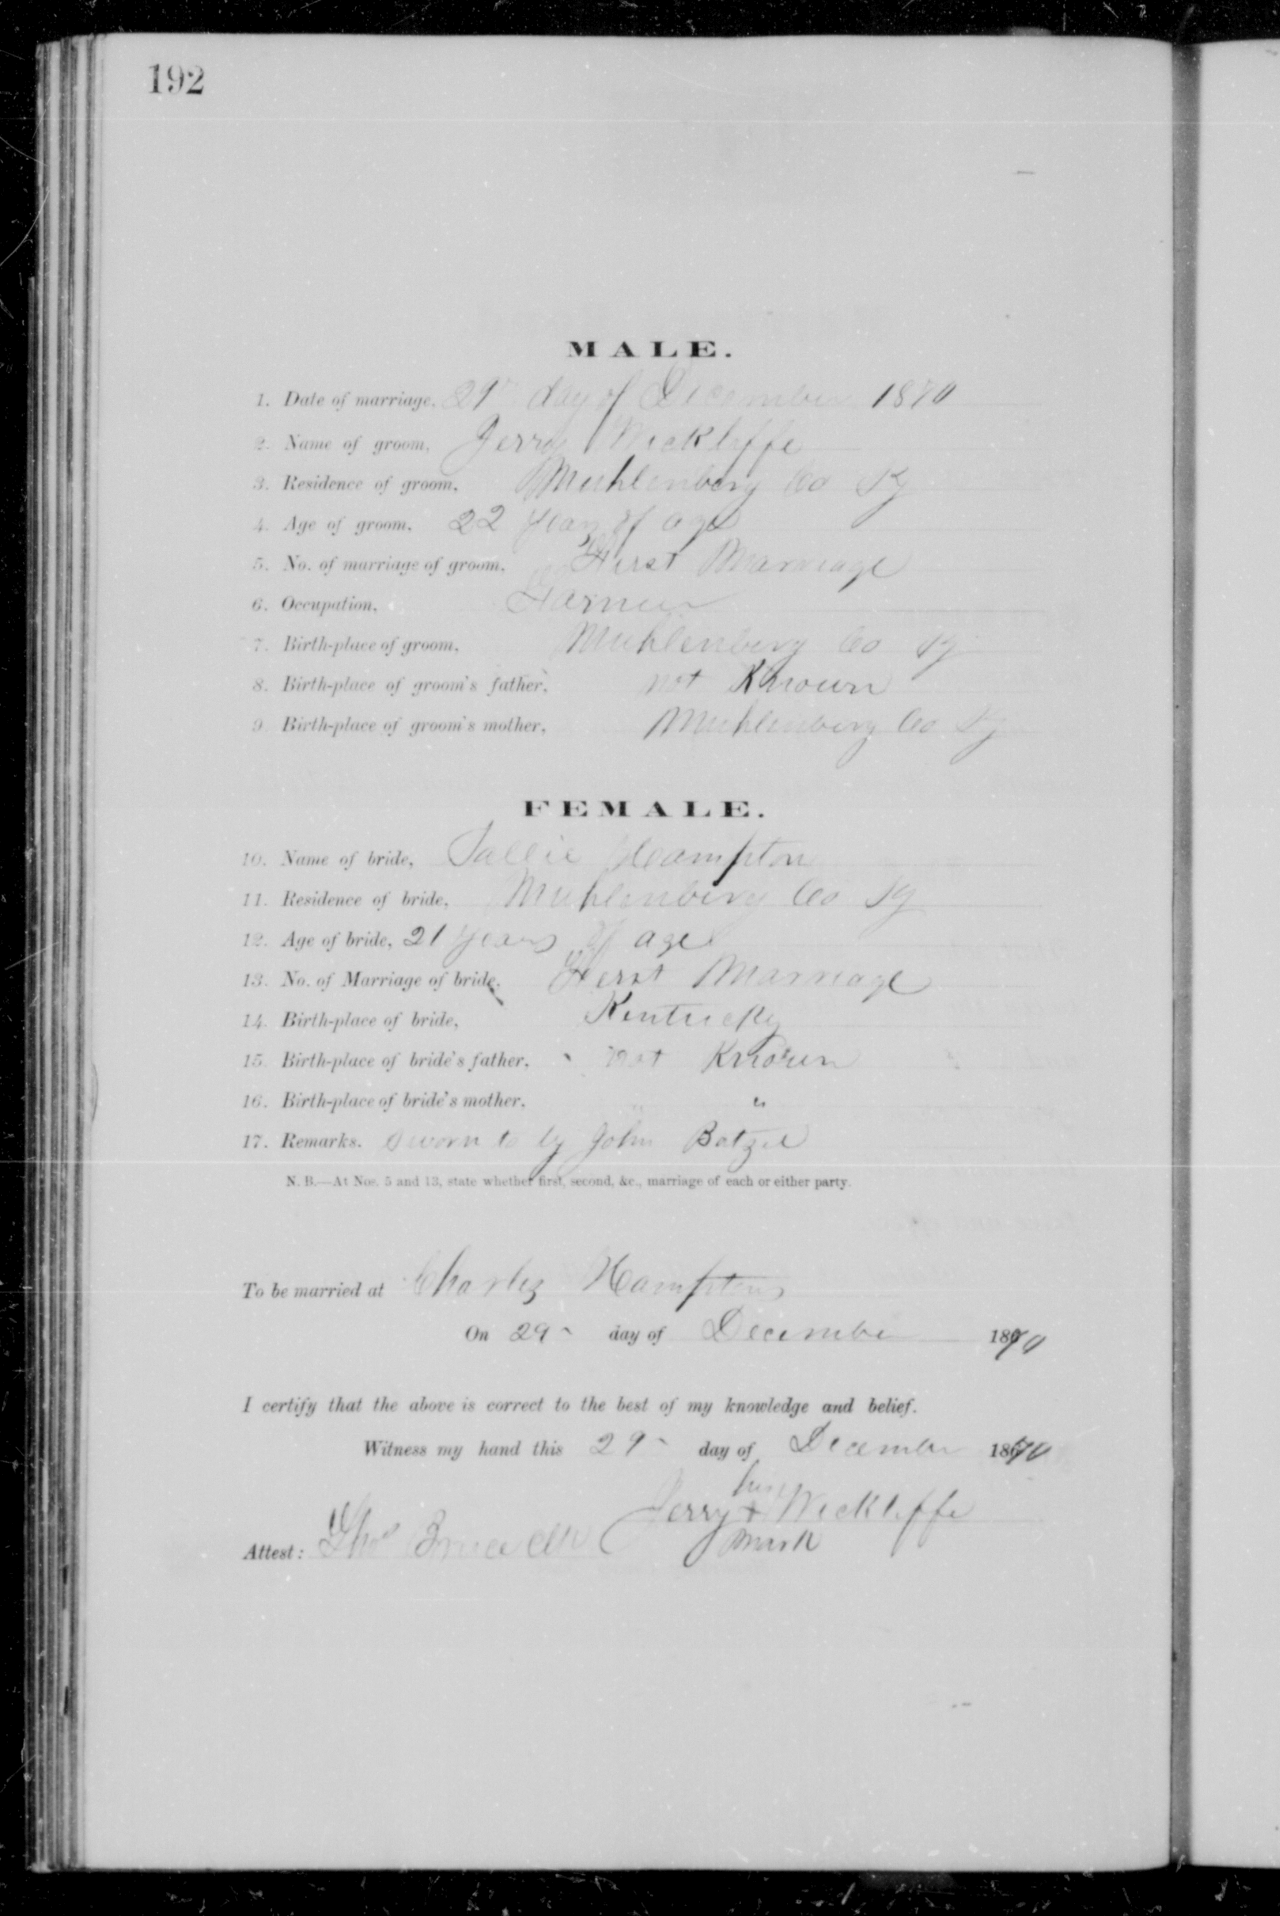 192
MALE.
1. Date of marriage, 29th day of December 1870
2. Name of groom, Jerry Wickliffe
3. Residence of groom, Muhlenberg Co Ky
4. Age of groom, 22 years of age
5. No. of marriage of groom, First Marriage
6. Occupation, Farmer
7. Birth-place of groom, Muhlenberg Co Ky
8. Birth-place of groom's father, not Known
9. Birth-place of groom's mother, Muhlenberg Co Ky
FEMALE.
10. Name of bride, Sallie Hampton
11. Residence of bride, Muhlenberg Co Ky
12. Age of bride, 21 years of age
13. No. of Marriage of bride, First Marriage
14. Birth-place of bride, Kentucky
15. Birth-place of bride's father, not Known
16. Birth-place of bride's mother, "
17. Remarks. Sworn to by John
N. B.—At Nos. 5 and 13, state whether first, second, &c., marriage of each or either party.
To be married at Charley Hamptons
On 29 day of December 1870
I certify that the above is correct to the best of my knowledge and belief.
Witness my hand this 29 day of December 1870
his
Jerry x Wickliffe
mark
Attest: Thos Bruce Clk